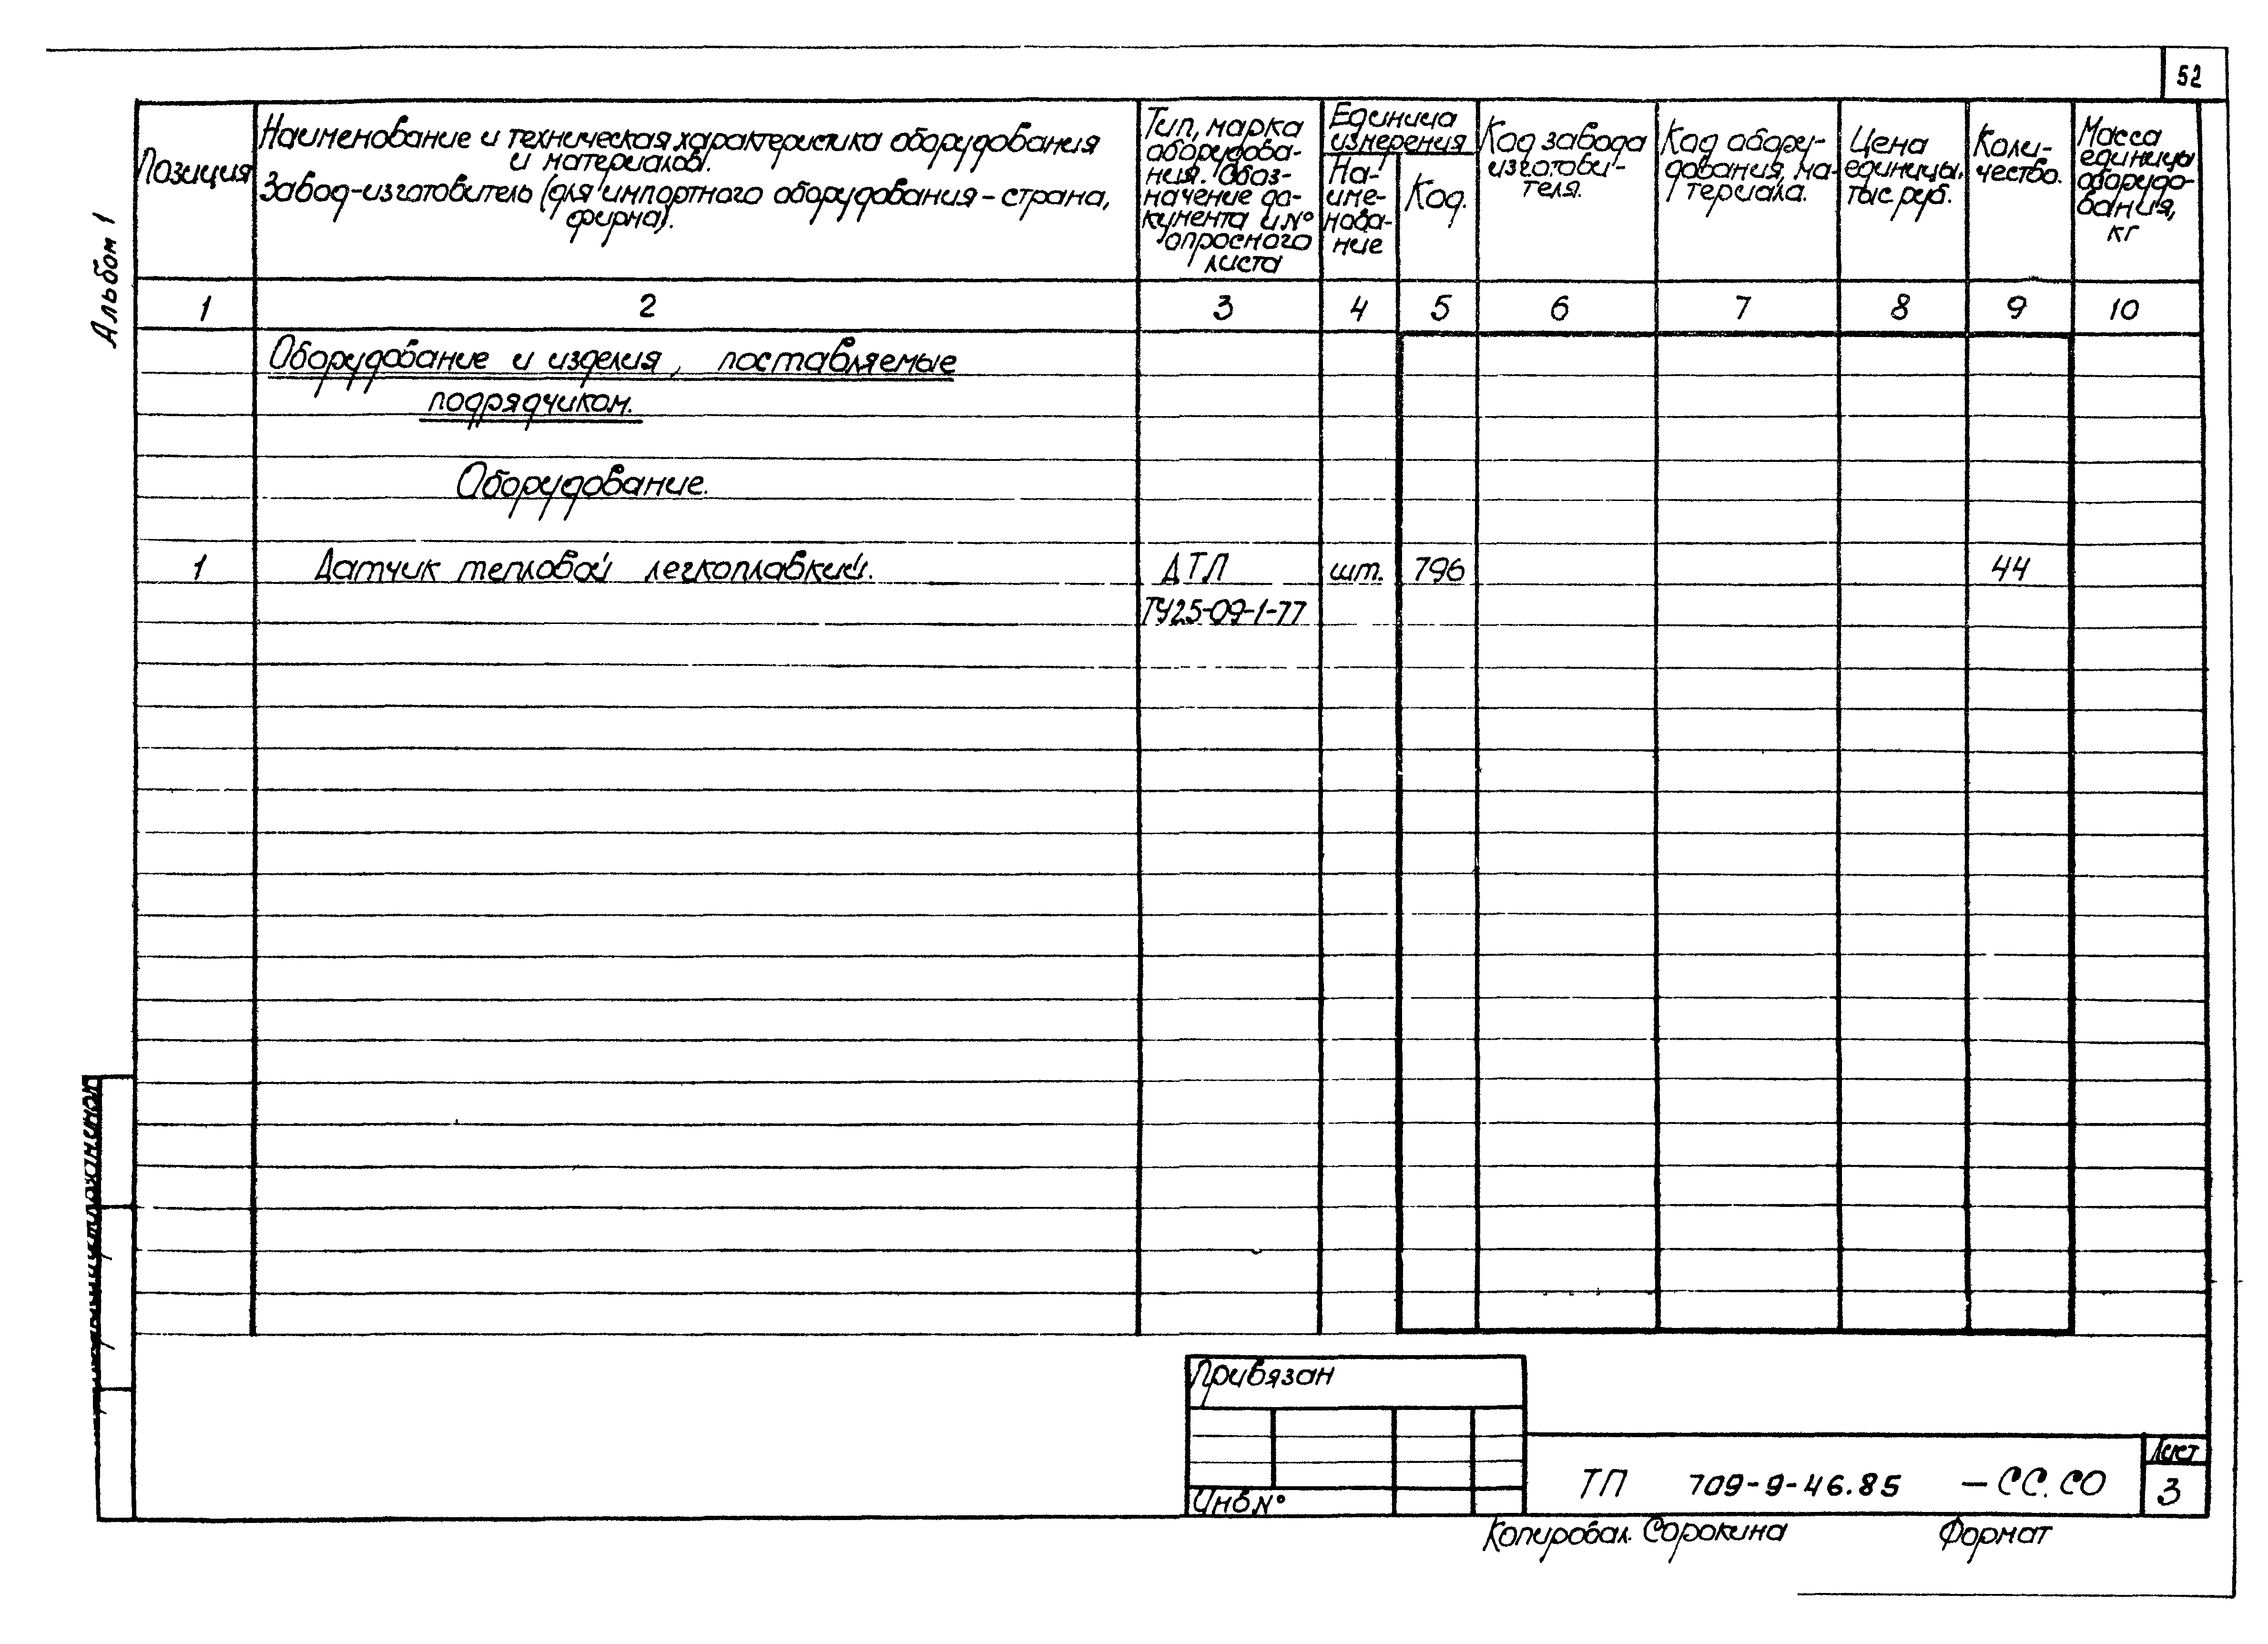 52
Альбом 1
Позиция
Наименование и техническая характеристика оборудования
и материалов.
Завод-изготовитель (для импортного оборудования - страна,
фирма).
Тип, марка
оборудова-
ния. Обоз-
начение до-
кумента и №
опросного
листа
Единица
измерения
На-
име-
нова-
ние
Код.
Код завода
изготови-
теля.
Код обору-
дования, ма-
териала.
Цена
единицы,
тыс руб.
Коли-
чество.
Масса
единицы
оборудо-
вания,
кг
1 2 3 4 5 6 7 8 9 10
Оборудование и изделия, поставляемые
подрядчиком.
Оборудование.
1 Датчик тепловой легкоплавкий. ДТЛ шт. 796 44
ТУ25-09-1-77
Привязан
Инв.№
ТП 709-9-46.85 -СС.СО
Лист
3
Копировал. Сорокина Формат